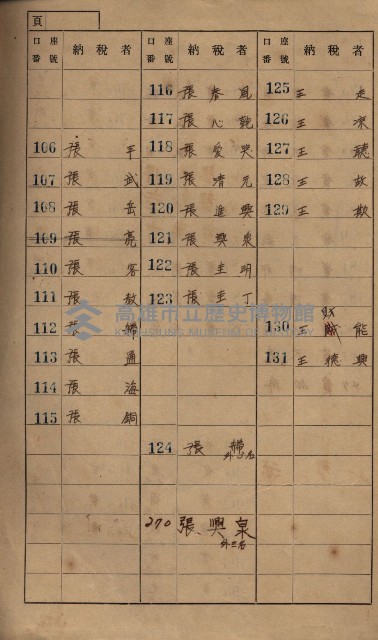 頁
口座番號 納稅者
106 張 平
107 張 武
108 張 岳
109 張 亮
110 張 客
111 張 敖
112 張
113 張 通
114 張 海
115 張 銅
口座番號 納稅者
116 張 春 鳳
117 張 心 乾
118 張 愛 哭
119 張 清 元
120 張 進 興
121 張 興 泉
122 張 圭 明
123 張 圭 丁
124 張
270 張 興 泉
外三名
口座番號 納稅者
125 王 走
126 王
127 王 聽
128 王 故
129 王 欺
130 王 能
131 王 德 興
高雄市立歷史博物館
KAOHSIUNG MUSEUM OF HISTORY